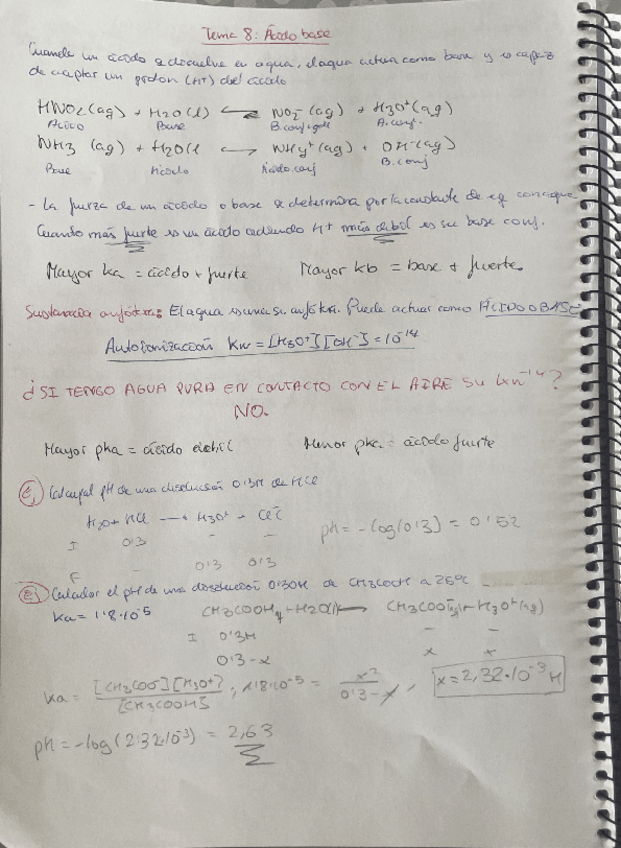 Tema 8: Ácido base
Cuando un ácido se disuelve en agua, el agua actua como base y es capaz
de aceptar un proton (H+) del ácido
HNO2 (ag) + H2O (l) ⇌ NO2- (ag) + H3O+ (ag)
Ácido Base B. conjugada A. conj.
NH3 (ag) + H2O(l ⇌ NH4+ (ag) + OH- (ag)
Base Ácido Ácido conj B. conj
- La fuerza de un ácido o base se determina por la constante de eq
Cuando más fuerte es un ácido cediendo H+ más debil es su base conj.
Mayor ka = ácido + fuerte Mayor kb = base + fuerte.
Sustancia anfótera: El agua es una s. anfótera. Puede actuar como ÁCIDO O BASE
Autoionización Kw = [H3O+][OH-] = 10-14
¿SI TENGO AGUA PURA EN CONTACTO CON EL AIRE SU -14?
NO.
Mayor pka = ácido debil Menor pka = ácido fuerte
Ej Calcula el pH de una disolución 0'3M de HCl
H2O + HCl → H3O+ + Cl-
I 0'3 - -
pH = -log(0'3) = 0'52
F - 0'3 0'3
Ej Calcular el pH de una disolución 0'30M de CH3COOH a 25ºC
Ka = 1'8·10-5 CH3COOH + H2O(l) ⇌ CH3COO- + H3O+(ag)
I 0'3M - -
0'3-x x x
Ka = [CH3COO-][H3O+] / [CH3COOH] ; 1'8·10-5 = x2 / 0'3-x , x = 2,32·10-3 M
pH = -log(2'32·10-3) = 2,63